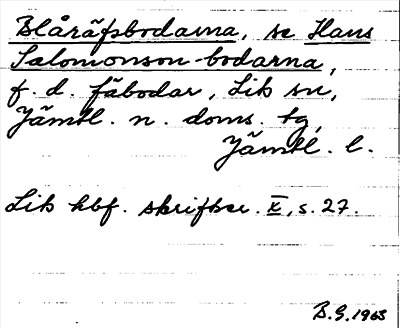 Blåräfsbodarna, se Hans
Salomonson-bodarna,
f. d. fäbodar, Lits sn,
Jämtl. n. doms. tg,
Jämtl. l.
Lits hbf. skriftser. X, s. 27.
B.G. 1963